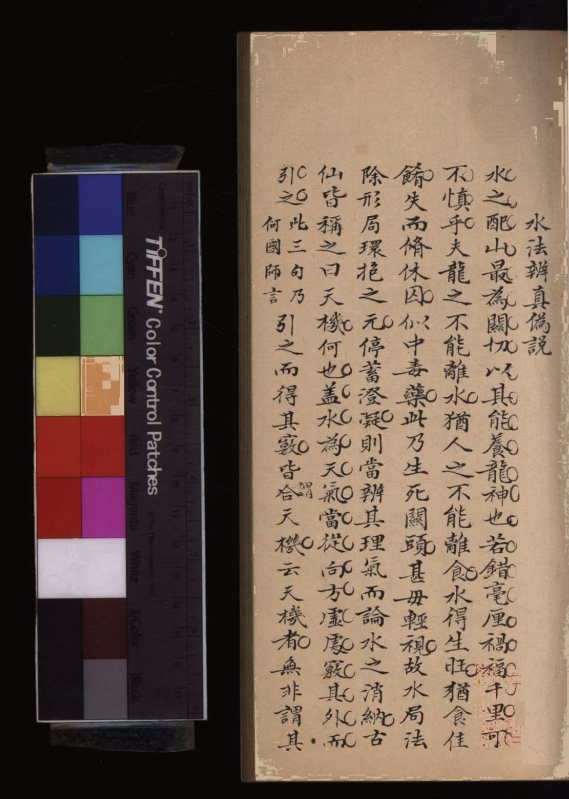 水法辨真偽說
水之配山最為關切以其能養龍神也若錯毫厘禍福千里可
不慎乎夫龍之不能離水猶人之不能離食水得生旺猶食佳
餚失而脩休囚似中毒藥此乃生死關頭甚毋輕視故水局法
除形局環抱之元停蓄澄凝則當辨其理氣而論水之消納古
仙皆稱之曰天機何也蓋水為天氣當從向方虛處竅其外而
引之此三句乃何國師言引之而得其竅皆合謂天機云天機者無非謂其
TIFFEN Color Control Patches
Blue
Cyan
Green
Yellow
Red
Magenta
White
3/Color
Black